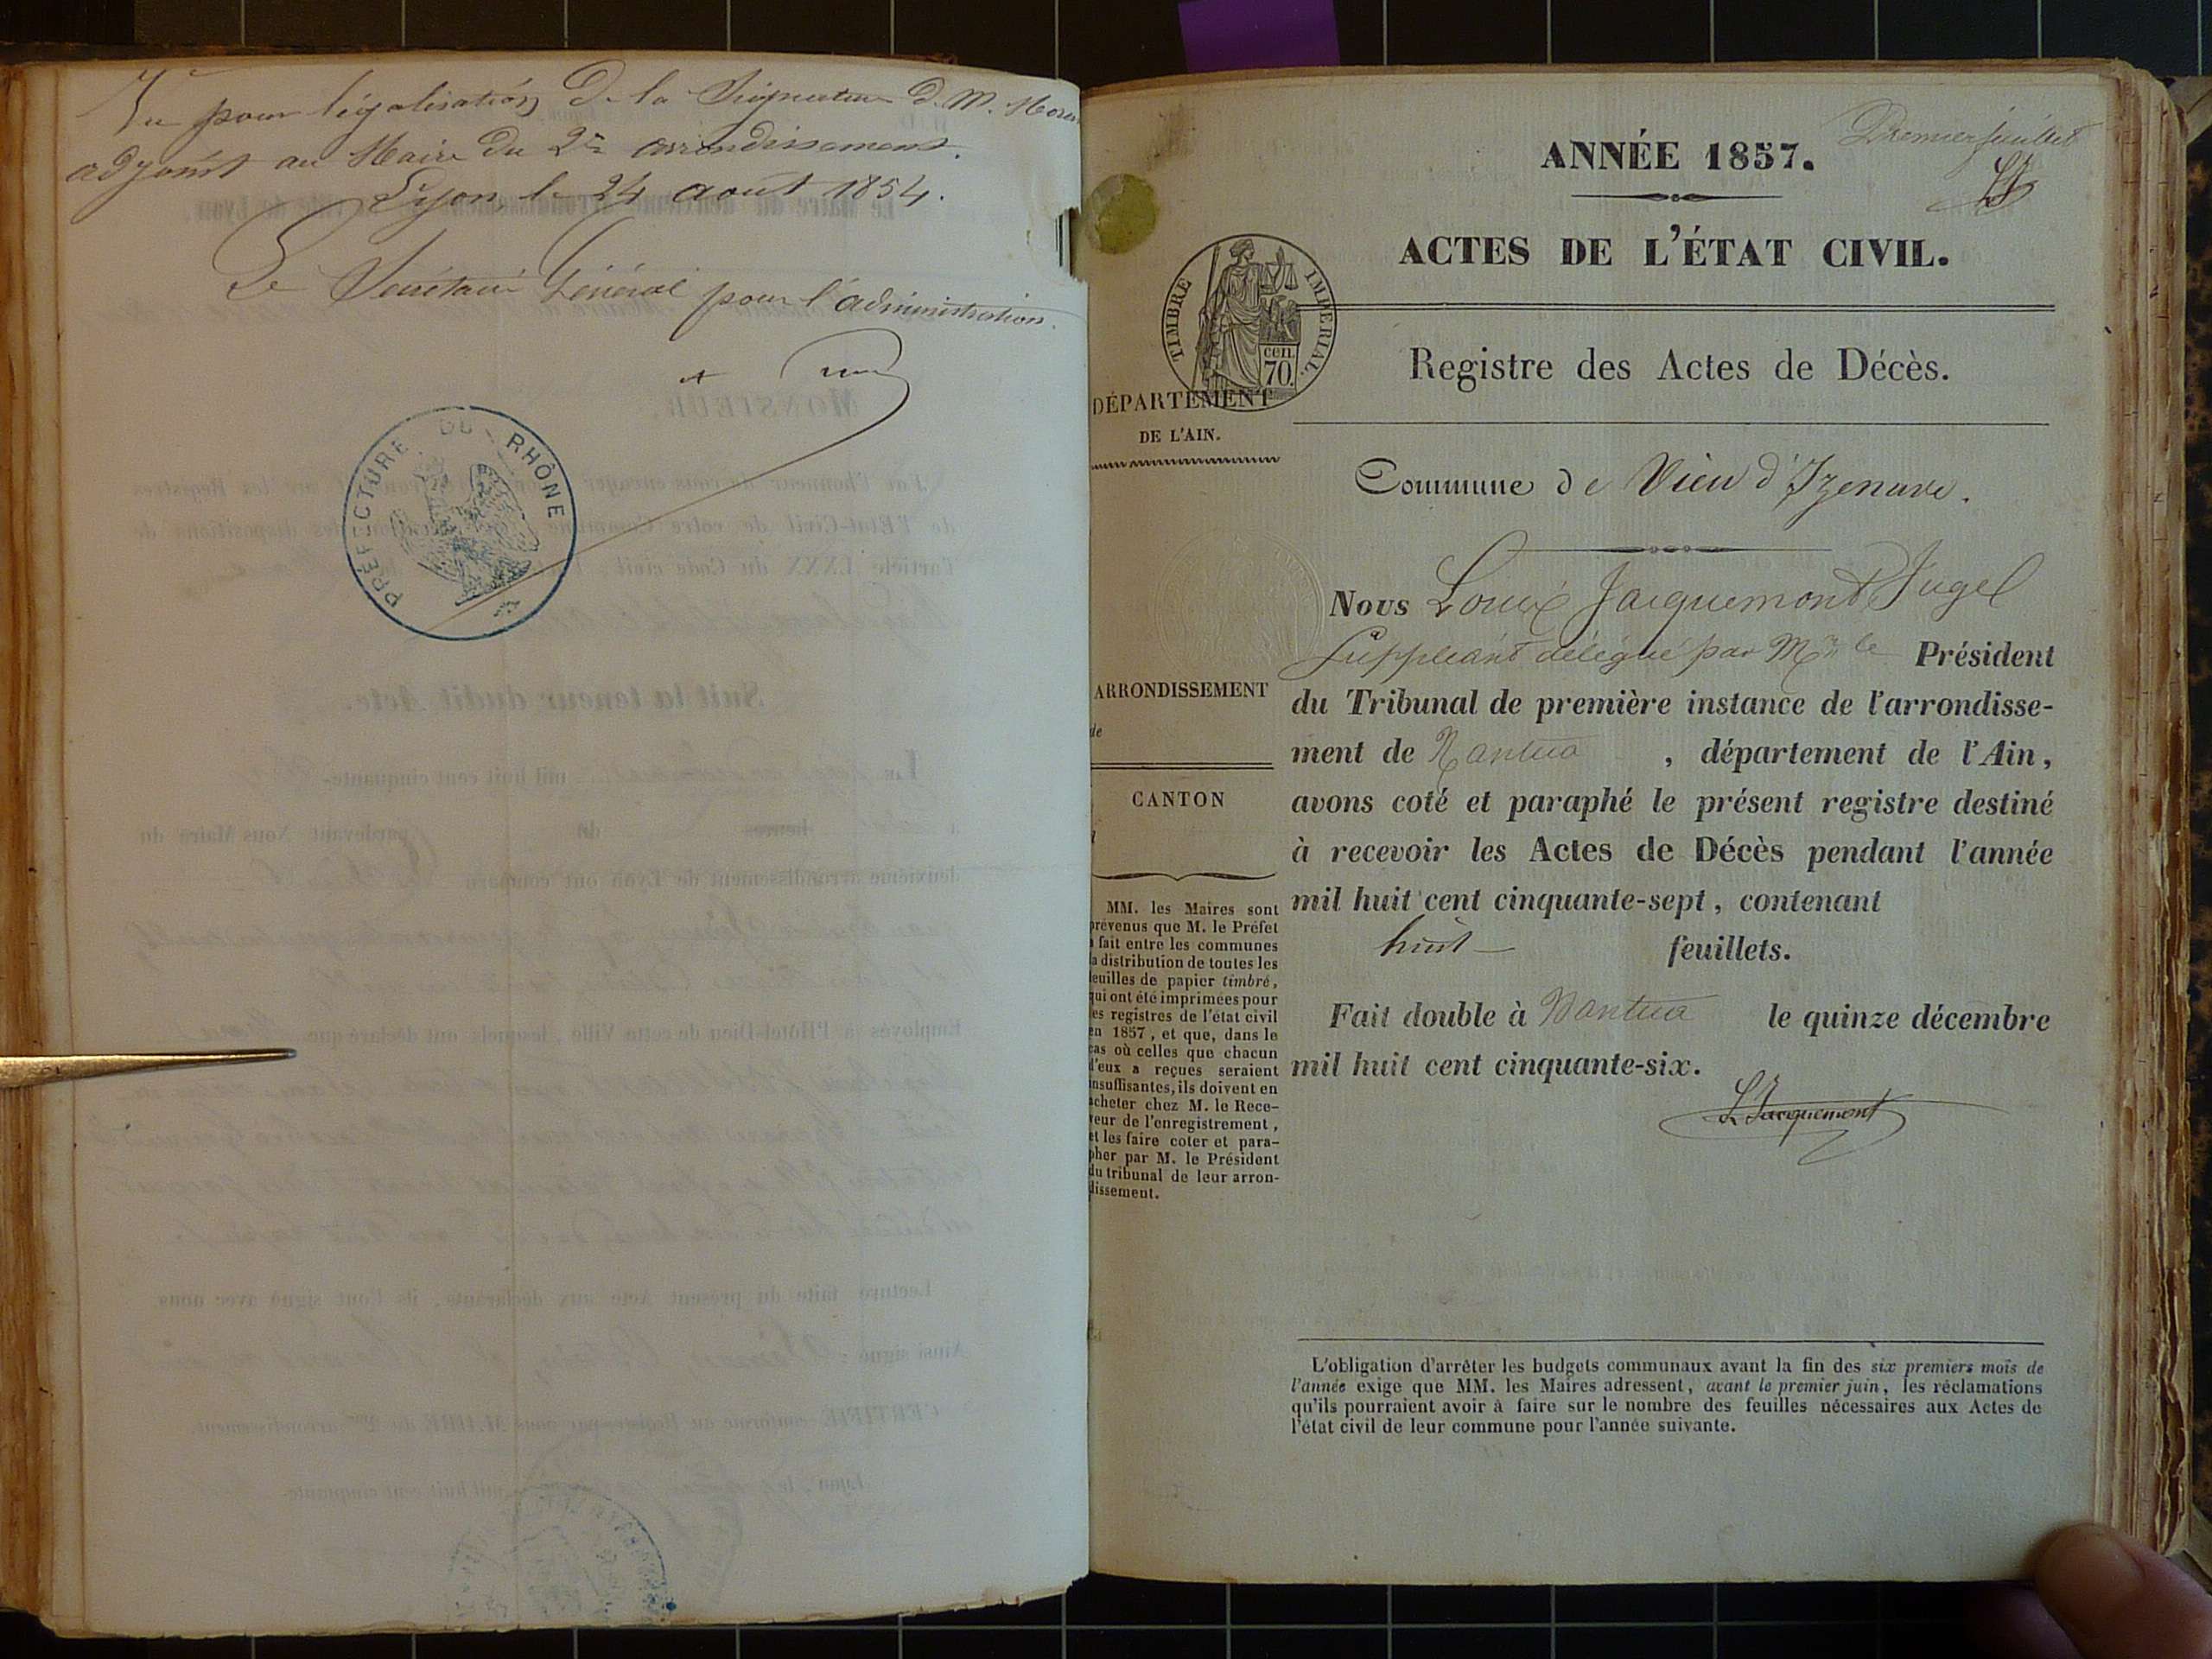 Vu pour légalisation de la Signature de M. Morin
adjoint au Maire du 2e arrondissement.
Lyon le 24 août 1854.
Le Secrétaire Général pour l'administration.
PRÉFECTURE DU RHÔNE
Premier feuillet
LJ
ANNÉE 1857.
ACTES DE L'ÉTAT CIVIL.
TIMBRE IMPÉRIAL.
cen
70.
Registre des Actes de Décès.
DÉPARTEMENT
DE L'AIN.
Commune de Vieu d'Izenave.
Nous Louis Jacquemont Juge
Suppléant délégué par Mr le Président
du Tribunal de première instance de l'arrondisse-
ment de Nantua, département de l'Ain,
avons coté et paraphé le présent registre destiné
à recevoir les Actes de Décès pendant l'année
mil huit cent cinquante-sept, contenant
huit feuillets.
Fait double à Nantua le quinze décembre
mil huit cent cinquante-six.
L Jacquemont
ARRONDISSEMENT
de
CANTON
MM. les Maires sont
prévenus que M. le Préfet
a fait entre les communes
la distribution de toutes les
feuilles de papier timbré,
qui ont été imprimées pour
les registres de l'état civil
en 1857, et que, dans le
cas où celles que chacun
d'eux a reçues seraient
insuffisantes, ils doivent en
acheter chez M. le Rece-
veur de l'enregistrement,
et les faire coter et para-
pher par M. le Président
du tribunal de leur arron-
dissement.
L'obligation d'arrêter les budgets communaux avant la fin des six premiers mois de
l'année exige que MM. les Maires adressent, avant le premier juin, les réclamations
qu'ils pourraient avoir à faire sur le nombre des feuilles nécessaires aux Actes de
l'état civil de leur commune pour l'année suivante.